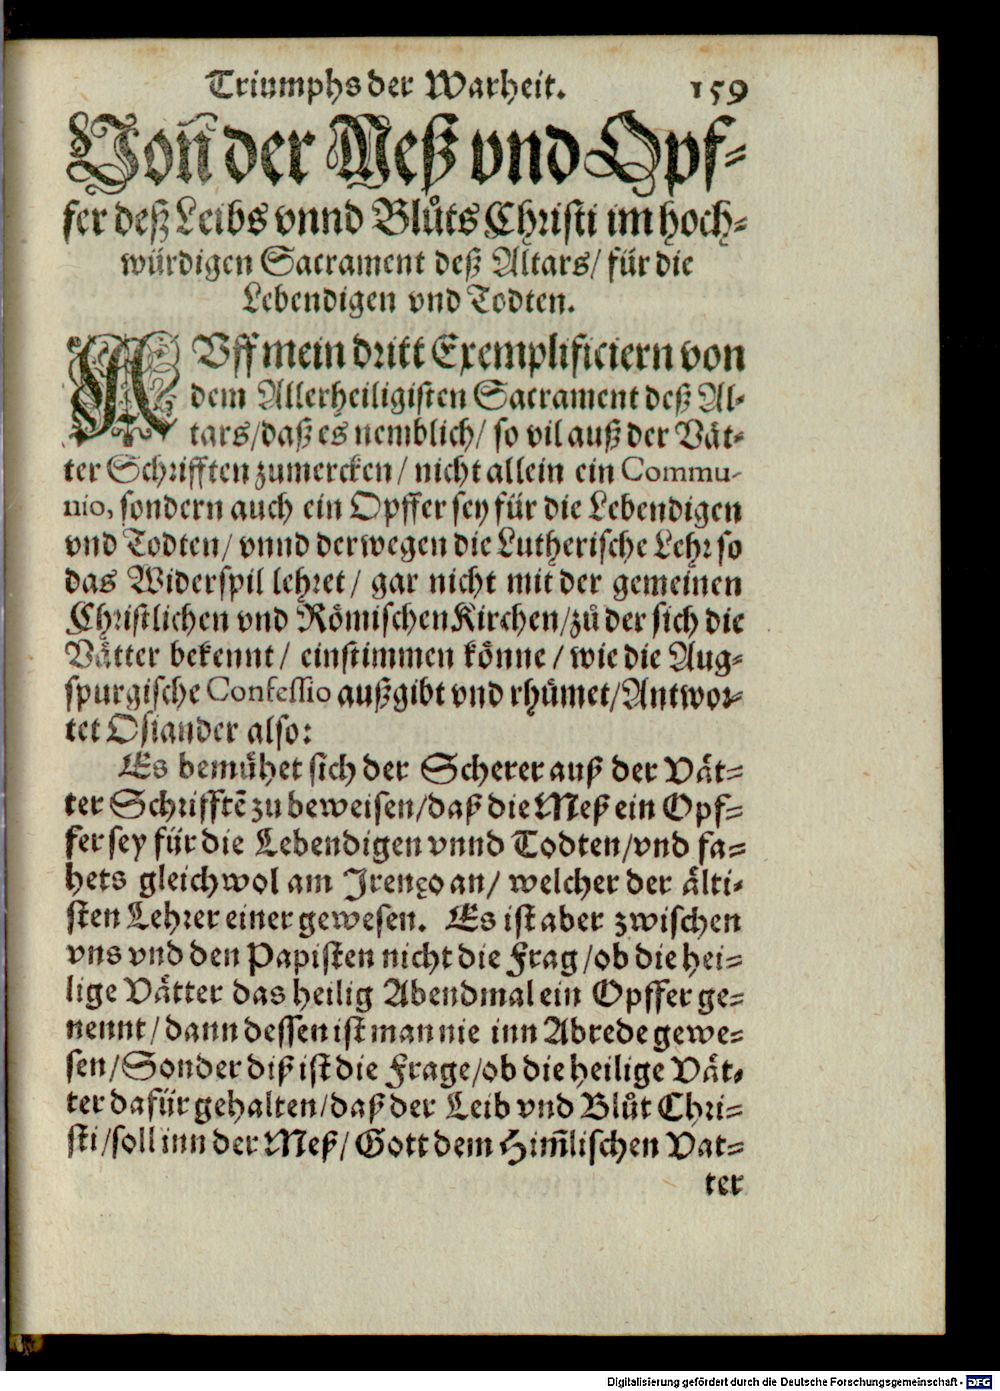 Triumphs der Warheit. 159
Von der Meß vnd Opf-
fer deß Leibs vnnd Blůts Christi im hoch-
würdigen Sacrament deß Altars/ für die
Lebendigen vnd Todten.
AVff mein dritt Exemplificiern von
dem Allerheiligisten Sacrament deß Al-
tars/ daß es nemblich/ so vil auß der Vät-
ter Schrifften zumercken/ nicht allein ein Commu-
nio, sondern auch ein Opffer sey für die Lebendigen
vnd Todten/ vnnd derwegen die Lutherische Lehr so
das Widerspil lehret/ gar nicht mit der gemeinen
Christlichen vnd Römischen Kirchen/ zů der sich die
Vätter bekennt/ einstimmen könne/ wie die Aug-
spurgische Confessio außgibt vnd rhůmet/ Antwor-
tet Osiander also:
Es bemühet sich der Scherer auß der Vät-
ter Schrifftē zu beweisen/ daß die Meß ein Opf-
fer sey für die Lebendigen vnnd Todten/ vnd fa-
hets gleichwol am Jrenęo an/ welcher der älti-
sten Lehrer einer gewesen. Es ist aber zwischen
vns vnd den Papisten nicht die Frag/ ob die hei-
lige Vätter das heilig Abendmal ein Opffer ge-
nennt/ dann dessen ist man nie inn Abrede gewe-
sen/ Sonder diß ist die Frage/ ob die heilige Vät-
ter dafür gehalten/ daß der Leib vnd Blůt Chri-
sti/ soll inn der Meß/ Gott dem Him̄lischen Vat-
ter
Digitalisierung gefördert durch die Deutsche Forschungsgemeinschaft - DFG